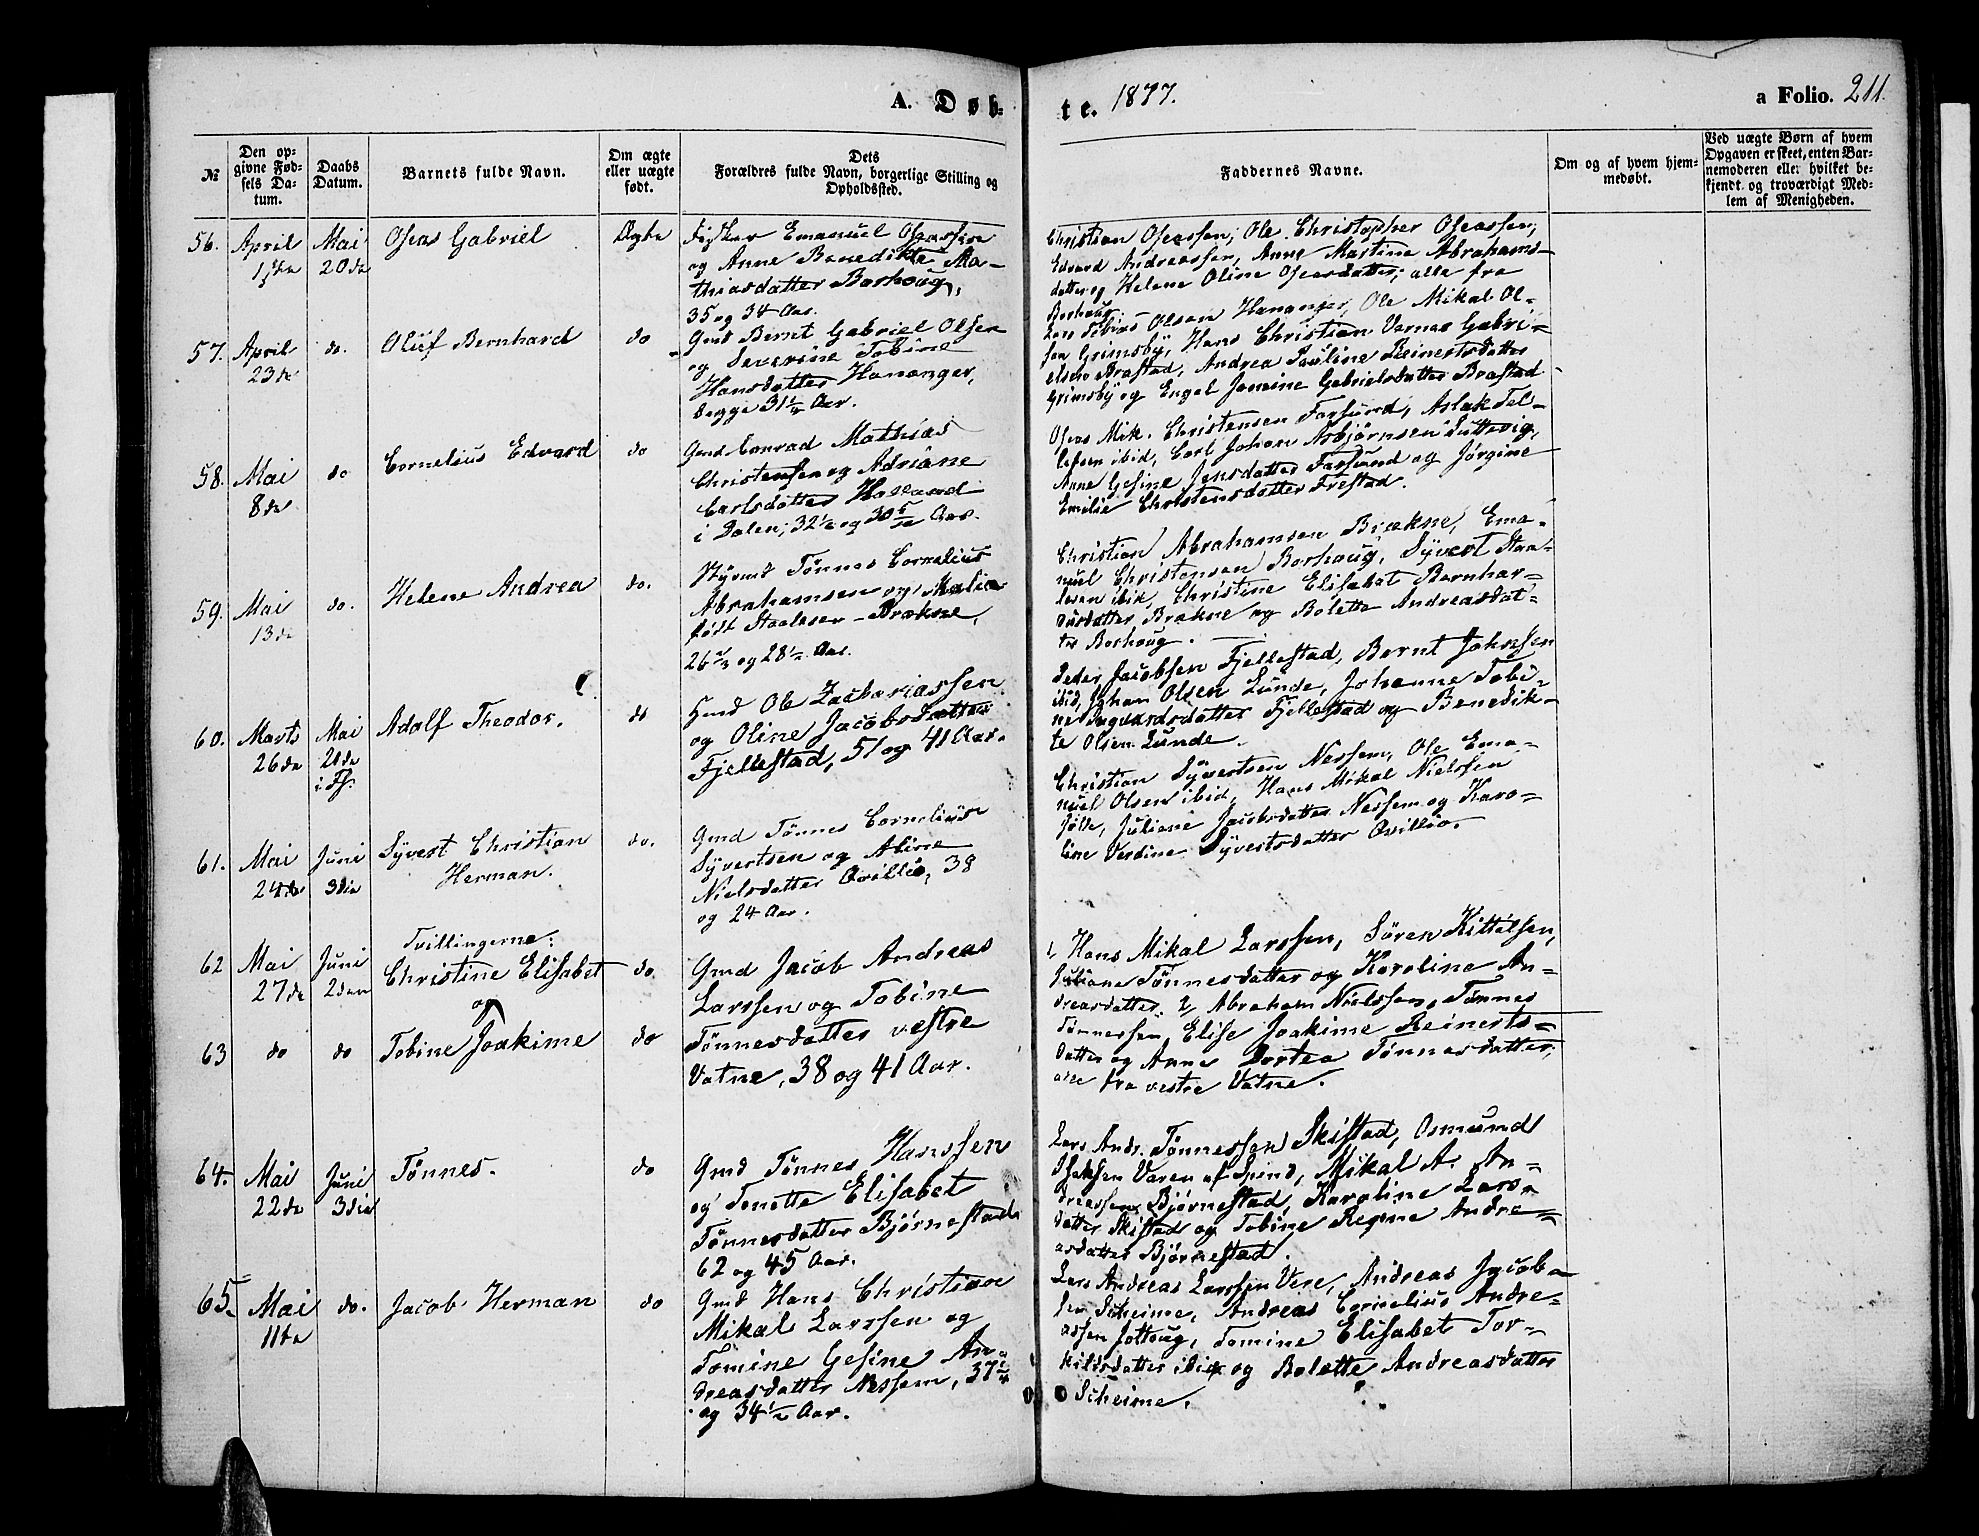 A. Døb-
te. 1877.
a Folio. 211.
№
Den op-
givne Fød-
sels Da-
tum.
Daabs
Datum.
Barnets fulde Navn.
Om ægte
eller uægte
født.
Dets
Forældres fulde Navn, borgerlige Stilling og
Opholdssted.
Faddernes Navne.
Om og af hvem hjem-
medøbt.
Ved uægte Børn af hvem
Opgaven er skeet, enten Bar-
nemoderen eller hvilket be-
kjendt og troværdigt Med-
lem af Menigheden.
56. April
Mai
20de
Oseas Gabriel
Ægte
Fisker Emanuel Oseassen
og Anne Benedikte Ma-
thiasdatter Borhoug,
35 og 34 Aar.
Christian Oseassen, Ole Christopher Oseassen,
Edvard Andreassen, Anne Martine Abrahams-
datter og Helene Oline Oseasdatter, alle fra
Borhoug.
57. April
23de
do.
Oluf Bernhard
do
Gmd Bernt Gabriel Olsen
og Severine Tobine
Hansdatter Hananger,
begge 31¼ Aar.
Lars Tobias Olsen Hananger, Ole Mikal Ol-
sen Grimsby, Hans Christian Vernas Gabri-
elsen Brastad, Andrea Pauline Reinertsdatter
Grimsby og Engel Jonine Gabrielsdatter Brastad
58. Mai
8de
do
Cornelius Edvard
do
Gmd Conrad Mathias
Christensen og Adriane
Carlsdatter Holland
i Dalen, 32½ og 30 5/12 Aar.
Oseas Mik. Christensen Farsund, Aslak Tel-
lefsen ibid, Carl Johan Asbjørnsen Luttevig,
Anne Gesine Jensdatter Farsund og Jørgine
Emilie Christensdatter Frestad.
59. Mai
13de
do.
Helene Andrea
do.
Styrmd Tönnes Cornelius
Abrahamsen og Malia
født Staalesen Brækne,
26 og 28½ Aar.
Christian Abrahamsen Brækne, Ema-
nuel Christensen Borhaug, Syvert Staa-
lesen ibid, Christine Elisabet Bernhar-
dusdatter Brækne og Bolette Andreasdat-
ter Borhoug.
60. Marts
26de
Mai
21de
Adolf Theodor.
do
Hmd Ole Zachariassen
og Oline Jacobsdatter
Fjellestad, 51 og 41 Aar.
Peder Jacobsen Fjellestad, Bernt Johnsen
ibid, Johan Olsen Lunde, Johanne Tobi-
ne Ingvardsdatter Fjellestad og Benedik-
te Olsen Lunde.
61. Mai
24de
Juni
3die
Syvert Christian
Herman.
do.
Gmd Tönnes Cornelius
Syvertsen og Aline
Nielsdatter Ovillie, 38
og 24 Aar.
Christian Syvertsen Nessem, Ole Ema-
nuel Olsen ibid, Hans Mikal Nielssen
Jølle, Juliane Jacobsdatter Nessem og Karo-
line Verdine Syvertsdatter Ovillie.
Tvillingerne:
62 Mai
27de
Juni
2den
Christine Elisabet
og
do.
Gmd Jacob Andreas
Larssen og Tobine
Tönnesdatter vestre
Vatne, 38 og 41 Aar.
1, Hans Mikal Larssen, Sören Kittelsen,
Juliane Tönnesdatter og Karoline An-
dreasdatter. 2, Abraham Nielssen, Tönnes
Tönnessen, Elise Joakime Reinerts-
datter og Anne Dortea Tönnesdatter,
alle fra vestre Vatne.
63 do do Tobine Joakime do
64. Mai
22de
Juni
3die
Tönnes.
do
Gmd Tönnes Hanssen
og Tonette Elisabet
Tönnesdatter Bjørnestad
62 og 45 Aar.
Lars Andr. Tönnessen Skistad, Osmund
Isaksen Varen af Spind, Mikal A. An-
dreassen Bjørnestad, Karoline Lars-
datter Skistad og Tobine Regine Andre-
asdatter Bjørnestad.
65. Mai
11te
do.
Jacob Herman
do
Gmd Hans Christian
Mikal Larssen og
Tomine Gesine An-
dreasdatter Nessem, 37
og 34½ Aar.
Lars Andreas Larssen Vere, Andreas Jacob-
sen Scheime, Andreas Cornelius Andre-
assen Jottoug, Tomine Elisabet Tor-
kildsdatter ibid og Bolette Andreasdatter
Scheime.